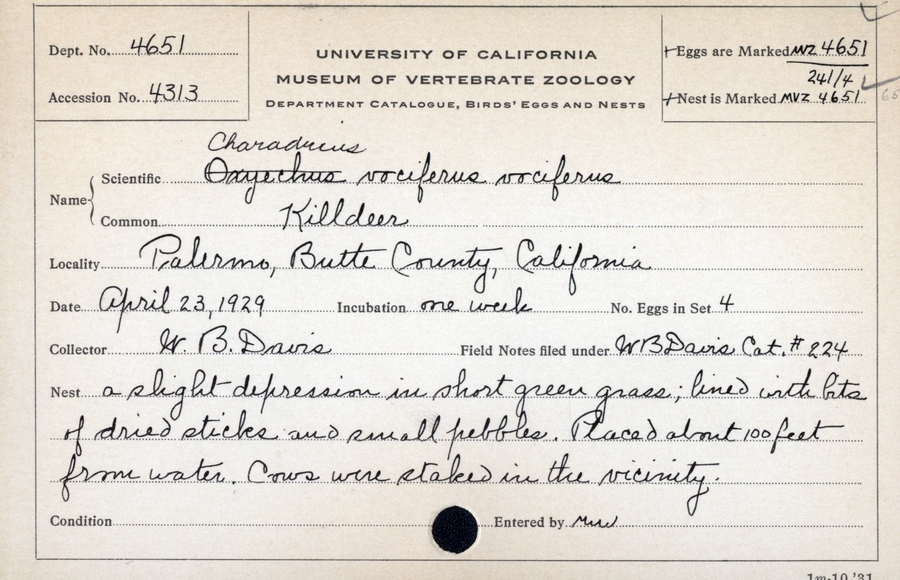 Dept. No. 4651
Accession No. 4313
UNIVERSITY OF CALIFORNIA
MUSEUM OF VERTEBRATE ZOOLOGY
DEPARTMENT CATALOGUE, BIRDS' EGGS AND NESTS
Eggs are Marked MVZ 4651
241/4
Nest is Marked MVZ 4651
65
Charadrius
Name Scientific Oxyechus vociferus vociferus
Common Killdeer
Locality Palermo, Butte County, California
Date April 23, 1929 Incubation one week No. Eggs in Set 4
Collector W. B. Davis Field Notes filed under WBDavis Cat. # 224
Nest a slight depression in short green grass; lined with bits
of dried sticks and small pebbles. Placed about 100 feet
from water. Cows were staked in the vicinity.
Condition Entered by
1m-10,'31